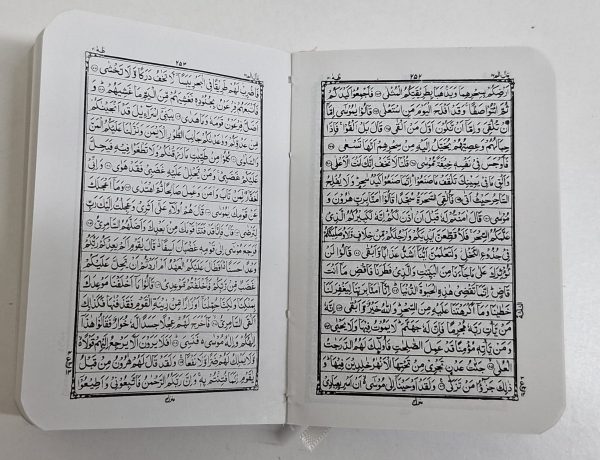 طٰهٰ
٢٥٢
اَرْضِكُمْ بِسِحْرِهِمَا وَيَذْهَبَا بِطَرِيْقَتِكُمُ الْمُثْلٰى ۝ فَاَجْمِعُوْا كَيْدَكُمْ
ثُمَّ ائْتُوْا صَفًّا ۚ وَقَدْ اَفْلَحَ الْيَوْمَ مَنِ اسْتَعْلٰى ۝ قَالُوْا يٰمُوْسٰٓى اِمَّآ
اَنْ تُلْقِيَ وَاِمَّآ اَنْ نَّكُوْنَ اَوَّلَ مَنْ اَلْقٰى ۝ قَالَ بَلْ اَلْقُوْا ۚ فَاِذَا
حِبَالُهُمْ وَعِصِيُّهُمْ يُخَيَّلُ اِلَيْهِ مِنْ سِحْرِهِمْ اَنَّهَا تَسْعٰى ۝
فَاَوْجَسَ فِيْ نَفْسِهٖ خِيْفَةً مُّوْسٰى ۝ قُلْنَا لَا تَخَفْ اِنَّكَ اَنْتَ الْاَعْلٰى ۝
وَاَلْقِ مَا فِيْ يَمِيْنِكَ تَلْقَفْ مَا صَنَعُوْا ؕ اِنَّمَا صَنَعُوْا كَيْدُ سٰحِرٍ ؕ وَلَا يُفْلِحُ
السَّاحِرُ حَيْثُ اَتٰى ۝ فَاُلْقِيَ السَّحَرَةُ سُجَّدًا قَالُوْٓا اٰمَنَّا بِرَبِّ هٰرُوْنَ وَ
مُوْسٰى ۝ قَالَ اٰمَنْتُمْ لَهٗ قَبْلَ اَنْ اٰذَنَ لَكُمْ ؕ اِنَّهٗ لَكَبِيْرُكُمُ الَّذِيْ
عَلَّمَكُمُ السِّحْرَ ۚ فَلَاُقَطِّعَنَّ اَيْدِيَكُمْ وَاَرْجُلَكُمْ مِّنْ خِلَافٍ وَّلَاُوصَلِّبَنَّكُمْ
فِيْ جُذُوْعِ النَّخْلِ ۫ وَلَتَعْلَمُنَّ اَيُّنَآ اَشَدُّ عَذَابًا وَّاَبْقٰى ۝ قَالُوْا لَنْ
نُّؤْثِرَكَ عَلٰى مَا جَآءَنَا مِنَ الْبَيِّنٰتِ وَالَّذِيْ فَطَرَنَا فَاقْضِ مَآ اَنْتَ
قَاضٍ ؕ اِنَّمَا تَقْضِيْ هٰذِهِ الْحَيٰوةَ الدُّنْيَا ۝ اِنَّآ اٰمَنَّا بِرَبِّنَا لِيَغْفِرَ لَنَا
خَطٰيٰنَا وَمَآ اَكْرَهْتَنَا عَلَيْهِ مِنَ السِّحْرِ ؕ وَاللّٰهُ خَيْرٌ وَّاَبْقٰى ۝ اِنَّهٗ
مَنْ يَّاْتِ رَبَّهٗ مُجْرِمًا فَاِنَّ لَهٗ جَهَنَّمَ ؕ لَا يَمُوْتُ فِيْهَا وَلَا يَحْيٰى ۝
وَمَنْ يَّاْتِهٖ مُؤْمِنًا قَدْ عَمِلَ الصّٰلِحٰتِ فَاُولٰٓئِكَ لَهُمُ الدَّرَجٰتُ
الْعُلٰى ۝ جَنّٰتُ عَدْنٍ تَجْرِيْ مِنْ تَحْتِهَا الْاَنْهٰرُ خٰلِدِيْنَ فِيْهَا ؕ وَ
ذٰلِكَ جَزٰٓؤُا مَنْ تَزَكّٰى ۝ وَلَقَدْ اَوْحَيْنَآ اِلٰى مُوْسٰٓى اَنْ اَسْرِ بِعِبَادِيْ
طٰهٰ
٢٥٣
فَاضْرِبْ لَهُمْ طَرِيْقًا فِي الْبَحْرِ يَبَسًا ۙ لَّا تَخٰفُ دَرَكًا وَّلَا تَخْشٰى ۝
فَاَتْبَعَهُمْ فِرْعَوْنُ بِجُنُوْدِهٖ فَغَشِيَهُمْ مِّنَ الْيَمِّ مَا غَشِيَهُمْ ۝ وَ
اَضَلَّ فِرْعَوْنُ قَوْمَهٗ وَمَا هَدٰى ۝ يٰبَنِيْٓ اِسْرَآءِيْلَ قَدْ اَنْجَيْنٰكُمْ
مِّنْ عَدُوِّكُمْ وَوٰعَدْنٰكُمْ جَانِبَ الطُّوْرِ الْاَيْمَنَ وَنَزَّلْنَا عَلَيْكُمُ الْمَنَّ
وَالسَّلْوٰى ۝ كُلُوْا مِنْ طَيِّبٰتِ مَا رَزَقْنٰكُمْ وَلَا تَطْغَوْا فِيْهِ فَيَحِلَّ
عَلَيْكُمْ غَضَبِيْ ۚ وَمَنْ يَّحْلِلْ عَلَيْهِ غَضَبِيْ فَقَدْ هَوٰى ۝ وَاِنِّيْ
لَغَفَّارٌ لِّمَنْ تَابَ وَاٰمَنَ وَعَمِلَ صَالِحًا ثُمَّ اهْتَدٰى ۝ وَمَآ اَعْجَلَكَ
عَنْ قَوْمِكَ يٰمُوْسٰى ۝ قَالَ هُمْ اُولَآءِ عَلٰٓى اَثَرِيْ وَعَجِلْتُ اِلَيْكَ رَبِّ
لِتَرْضٰى ۝ قَالَ فَاِنَّا قَدْ فَتَنَّا قَوْمَكَ مِنْۢ بَعْدِكَ وَاَضَلَّهُمُ السَّامِرِيُّ ۝
فَرَجَعَ مُوْسٰٓى اِلٰى قَوْمِهٖ غَضْبَانَ اَسِفًا ۚ قَالَ يٰقَوْمِ اَلَمْ يَعِدْكُمْ رَبُّكُمْ
وَعْدًا حَسَنًا ؕ اَفَطَالَ عَلَيْكُمُ الْعَهْدُ اَمْ اَرَدْتُّمْ اَنْ يَّحِلَّ عَلَيْكُمْ
غَضَبٌ مِّنْ رَّبِّكُمْ فَاَخْلَفْتُمْ مَّوْعِدِيْ ۝ قَالُوْا مَآ اَخْلَفْنَا مَوْعِدَكَ
بِمَلْكِنَا وَلٰكِنَّا حُمِّلْنَآ اَوْزَارًا مِّنْ زِيْنَةِ الْقَوْمِ فَقَذَفْنٰهَا فَكَذٰلِكَ
اَلْقَى السَّامِرِيُّ ۝ فَاَخْرَجَ لَهُمْ عِجْلًا جَسَدًا لَّهٗ خُوَارٌ فَقَالُوْا هٰذَآ
اِلٰهُكُمْ وَاِلٰهُ مُوْسٰى ۬ فَنَسِيَ ۝ اَفَلَا يَرَوْنَ اَلَّا يَرْجِعُ اِلَيْهِمْ قَوْلًا ۙ وَّ
لَا يَمْلِكُ لَهُمْ ضَرًّا وَّلَا نَفْعًا ۝ وَلَقَدْ قَالَ لَهُمْ هٰرُوْنُ مِنْ قَبْلُ
يٰقَوْمِ اِنَّمَا فُتِنْتُمْ بِهٖ ۚ وَاِنَّ رَبَّكُمُ الرَّحْمٰنُ فَاتَّبِعُوْنِيْ وَاَطِيْعُوْٓا